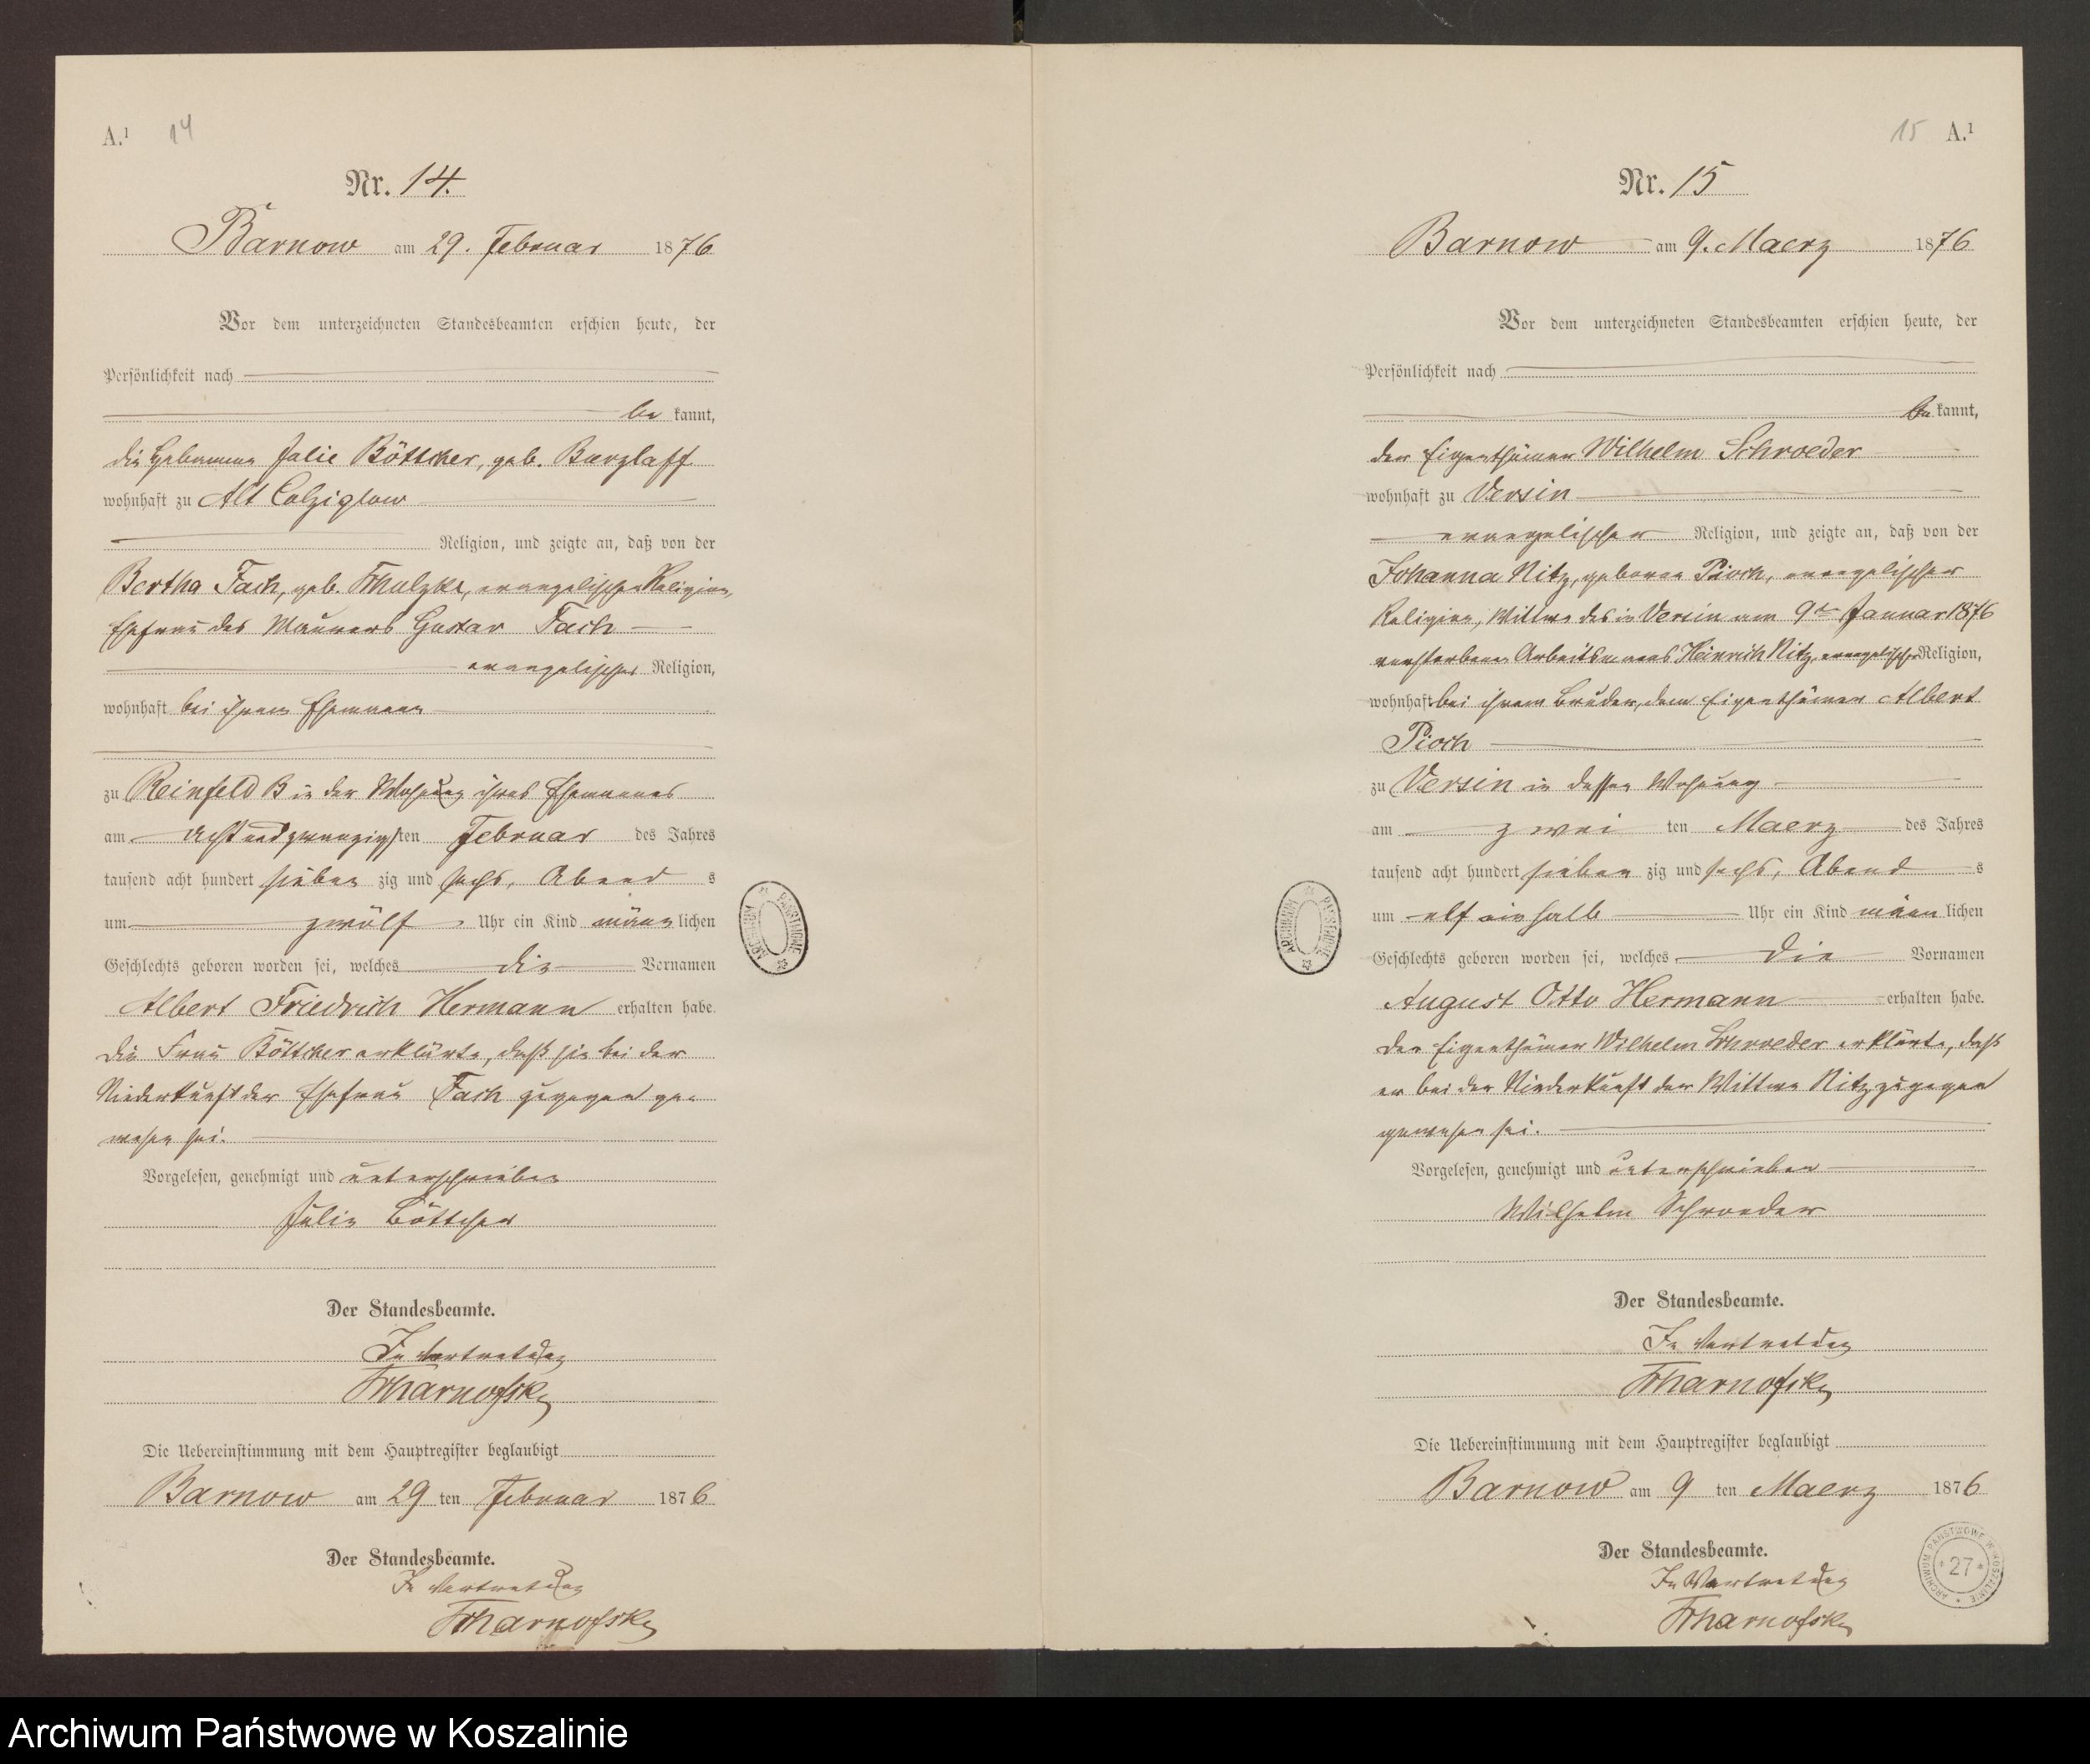 A.¹ 14
Nr. 14.
Barnow am 29. Februar 1876
Vor dem unterzeichneten Standesbeamten erschien heute, der
Persönlichkeit nach
be kannt,
die Hebamme Julie Böttcher, geb. Barzlaff
wohnhaft zu Alt Colziglow
Religion, und zeigte an, daß von der
Bertha Fach, geb. evangelischer Religion,
Ehefrau des Maurers Gustav Fach
evangelischer Religion,
wohnhaft bei ihrem Ehemann
zu Reinfeld B in der Wohnung ihres Ehemannes
am acht und zwanzigsten Februar des Jahres
tausend acht hundert sieben zig und sechs, Abend s
um zwölf Uhr ein Kind männ lichen
Geschlechts geboren worden sei, welches die Vornamen
Albert Friedrich Hermann erhalten habe.
Die Frau Böttcher erklärte, daß sie bei der
Niederkunft der Ehefrau Fach zugegen ge-
wesen sei.
Vorgelesen, genehmigt und unterschrieben
Julie Böttcher
Der Standesbeamte.
In Vertretung
Die Uebereinstimmung mit dem Hauptregister beglaubigt
Barnow am 29 ten Februar 1876
Der Standesbeamte.
In Vertretung
ARCHIWUM PAŃSTWOWE
15 A.¹
Nr. 15
Barnow am 9. Maerz 1876
Vor dem unterzeichneten Standesbeamten erschien heute, der
Persönlichkeit nach
be kannt,
der Eigenthümer Wilhelm Schroeder
wohnhaft zu Versin
evangelischer Religion, und zeigte an, daß von der
Johanna Nitz, geborene Pioch, evangelischer
Religion, Wittwe des in Versin am 9ten Januar 1876
verstorbenen Arbeitsmanns Heinrich Nitz, evangelischer Religion,
wohnhaft bei ihrem Bruder, dem Eigenthümer Albert
Pioch
zu Versin in dessen Wohnung
am zwei ten Maerz des Jahres
tausend acht hundert sieben zig und sechs, Abend s
um elf ein halb Uhr ein Kind männ lichen
Geschlechts geboren worden sei, welches die Vornamen
August Otto Hermann erhalten habe.
Der Eigenthümer Wilhelm Schroeder erklärte, daß
er bei der Niederkunft der Wittwe Nitz zugegen
gewesen sei.
Vorgelesen, genehmigt und unterschrieben
Wilhelm Schroeder
Der Standesbeamte.
In Vertretung
Die Uebereinstimmung mit dem Hauptregister beglaubigt
Barnow am 9 ten Maerz 1876
Der Standesbeamte.
In Vertretung
ARCHIWUM PAŃSTWOWE
ARCHIWUM PAŃSTWOWE W KOSZALINIE * 27 *
Archiwum Państwowe w Koszalinie